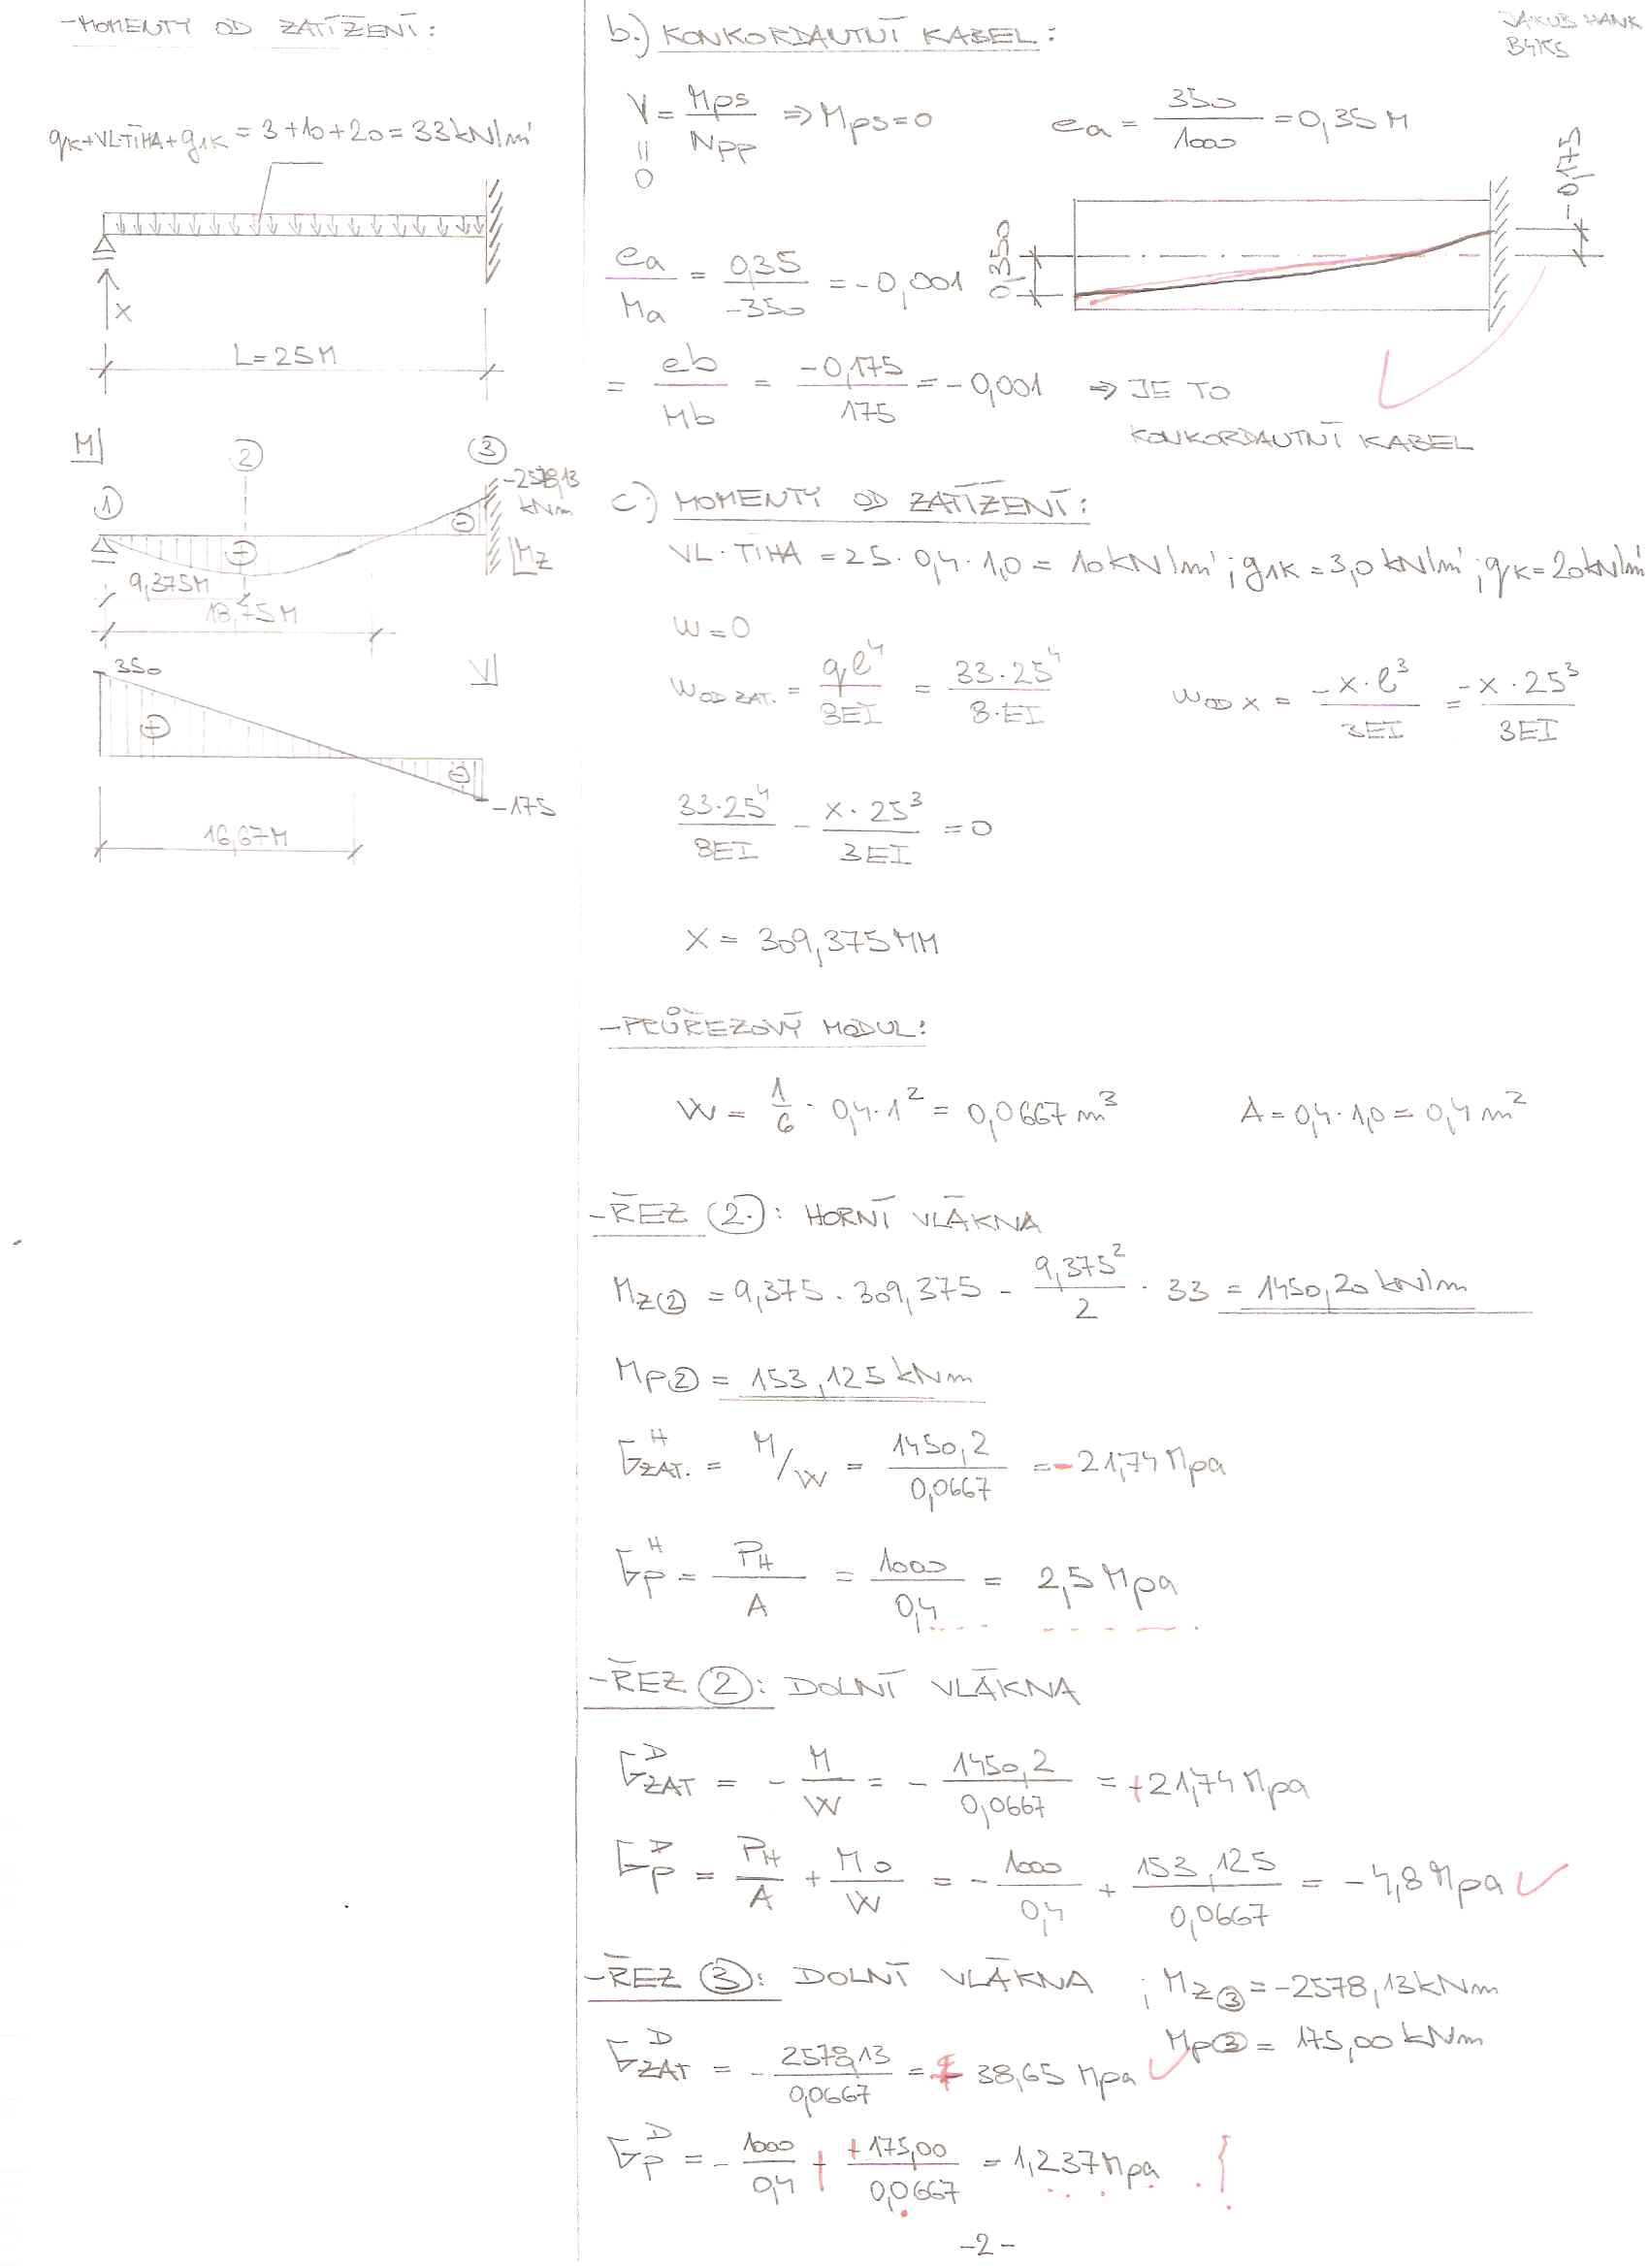 -MOMENTY OD ZATÍŽENÍ:
qk+VL.TÍHA+g1k = 3+10+20 = 33 kN/m'
X
L=25M
M
1
2
3
-2578,13
kNm
Mz
+
-
9,375M
18,75M
350
V
+
-
-175
16,67M
JAKUB HANK
B4K5
b.) KONKORDAUTNÍ KABEL:
V = Mps/Npp ⇒ Mps=0
=
0
ea = 350/1000 = 0,35M
ea/Ma = 0,35/-350 = -0,001
0,350
-0,175
= eb/Mb = -0,175/175 = -0,001 ⇒ JE TO
KONKORDAUTNÍ KABEL
c.) MOMENTY OD ZATÍŽENÍ:
VL.TÍHA = 25·0,4·1,0 = 10kN/m'; g1k=3,0kN/m'; qk=20kN/m'
w=0
wOD ZAT. = ql⁴/8EI = 33·25⁴/8·EI
wOD X = -X·l³/3EI = -X·25³/3EI
33·25⁴/8EI - X·25³/3EI = 0
X = 309,375MM
-PRŮŘEZOVÝ MODUL:
W = 1/6 · 0,4·1² = 0,0667 m³
A = 0,4·1,0 = 0,4 m²
-ŘEZ (2.): HORNÍ VLÁKNA
Mz② = 9,375·309,375 - 9,375²/2 · 33 = 1450,20 kN/m
Mp② = 153,125 kNm
σ^H ZAT. = M/W = 1450,2/0,0667 = -21,74 Mpa
σ^H p = PH/A = 1000/0,4 = 2,5 Mpa
-ŘEZ ②: DOLNÍ VLÁKNA
σ^D ZAT = - M/W = - 1450,2/0,0667 = +21,74 Mpa
σ^D p = PH/A + Mo/W = - 1000/0,4 + 153,125/0,0667 = -4,8 Mpa
-ŘEZ ③: DOLNÍ VLÁKNA ; Mz③ = -2578,13kNm
Mp③ = 175,00 kNm
σ^D ZAT = - 2578,13/0,0667 = 38,65 Mpa
σ^D p = - 1000/0,4 + +175,00/0,0667 = 1,237 Mpa
-2-